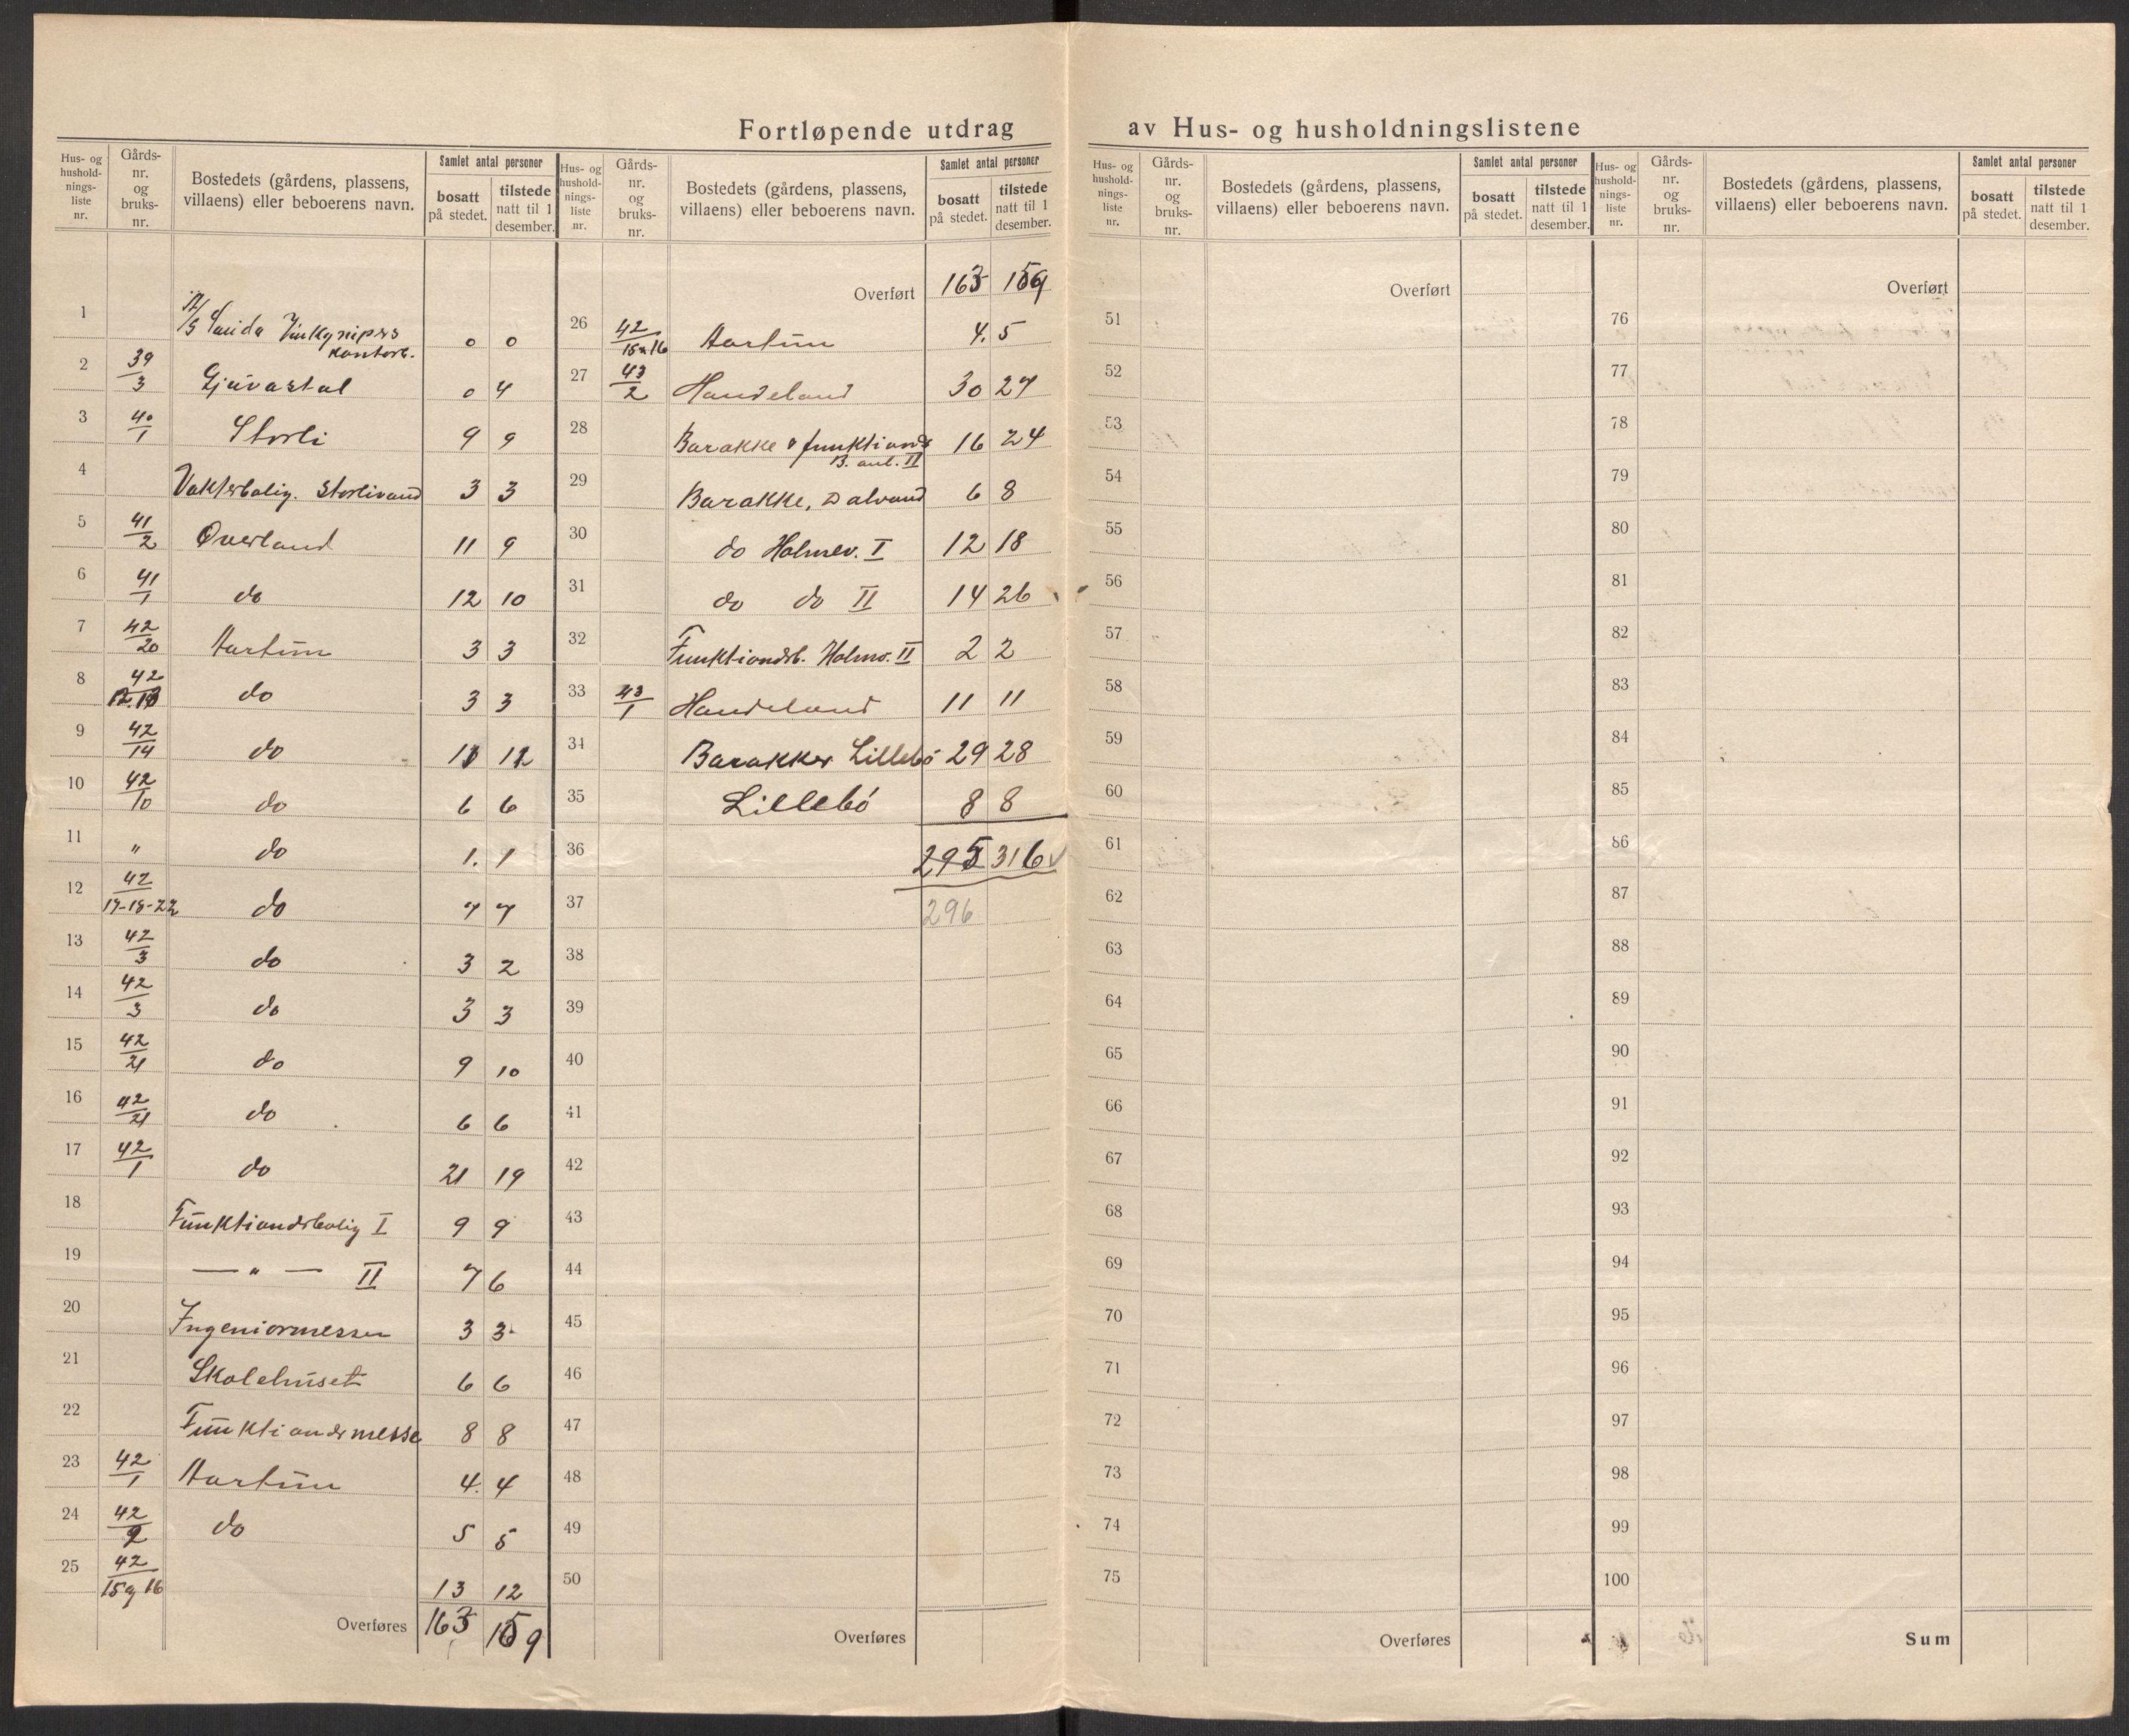 Fortløpende utdrag av Hus- og husholdningslistene
Hus- og hushold-nings-liste nr. | Gårds-nr. og bruks-nr. | Bostedets (gårdens, plassens, villaens) eller beboerens navn. | Samlet antal personer | bosatt på stedet. | tilstede natt til 1 desember.
1 A/S Sauda kontorb. 0 0
2 39/3 Gjuvastøl 0 4
3 40/1 Storli 9 9
4 Vakterbolig. Storlivand 3 3
5 41/2 Overland 11 9
6 41/1 do 12 10
7 42/20 Aartun 3 3
8 42/12.13 do 3 3
9 42/14 do 11 12
10 42/10 do 6 6
11 " do 1. 1
12 42/17-18-22 do 7 7
13 42/3 do 3 2
14 42/3 do 3 3
15 42/21 do 9 10
16 42/21 do 6 6
17 42/1 do 21 19
18 Funktiondsbolig I 9 9
19 — " — II 7 6
20 Ingeniørmessen 3 3
21 Skolehuset 6 6
22 Funktiondsmesse 8 8
23 42/1 Aartun 4. 4
24 42/2 do 5 5
25 42/15 og 16 13 12
Overføres 163 159
Hus- og hushold-nings-liste nr. | Gårds-nr. og bruks-nr. | Bostedets (gårdens, plassens, villaens) eller beboerens navn. | Samlet antal personer | bosatt på stedet. | tilstede natt til 1 desember.
Overført 163 159
26 42/15 og 16 Aartun 4. 5
27 43/2 Handeland 30 27
28 Barakke & funktionds B. anl. II 16 24
29 Barakke, Dalvand 6 8
30 do Holmev. I 12 18
31 do do II 14 26
32 Funktiondsb. Holmv. II 2 2
33 43/1 Handeland 11 11
34 Barakker Lillebö 29 28
35 Lillebö 8 8
36 295 316 ✓
37 296
38
39
40
41
42
43
44
45
46
47
48
49
50
Overføres
Hus- og hushold-nings-liste nr. | Gårds-nr. og bruks-nr. | Bostedets (gårdens, plassens, villaens) eller beboerens navn. | Samlet antal personer | bosatt på stedet. | tilstede natt til 1 desember.
Overført
51
52
53
54
55
56
57
58
59
60
61
62
63
64
65
66
67
68
69
70
71
72
73
74
75
Overføres
Hus- og hushold-nings-liste nr. | Gårds-nr. og bruks-nr. | Bostedets (gårdens, plassens, villaens) eller beboerens navn. | Samlet antal personer | bosatt på stedet. | tilstede natt til 1 desember.
Overført
76
77
78
79
80
81
82
83
84
85
86
87
88
89
90
91
92
93
94
95
96
97
98
99
100
Sum